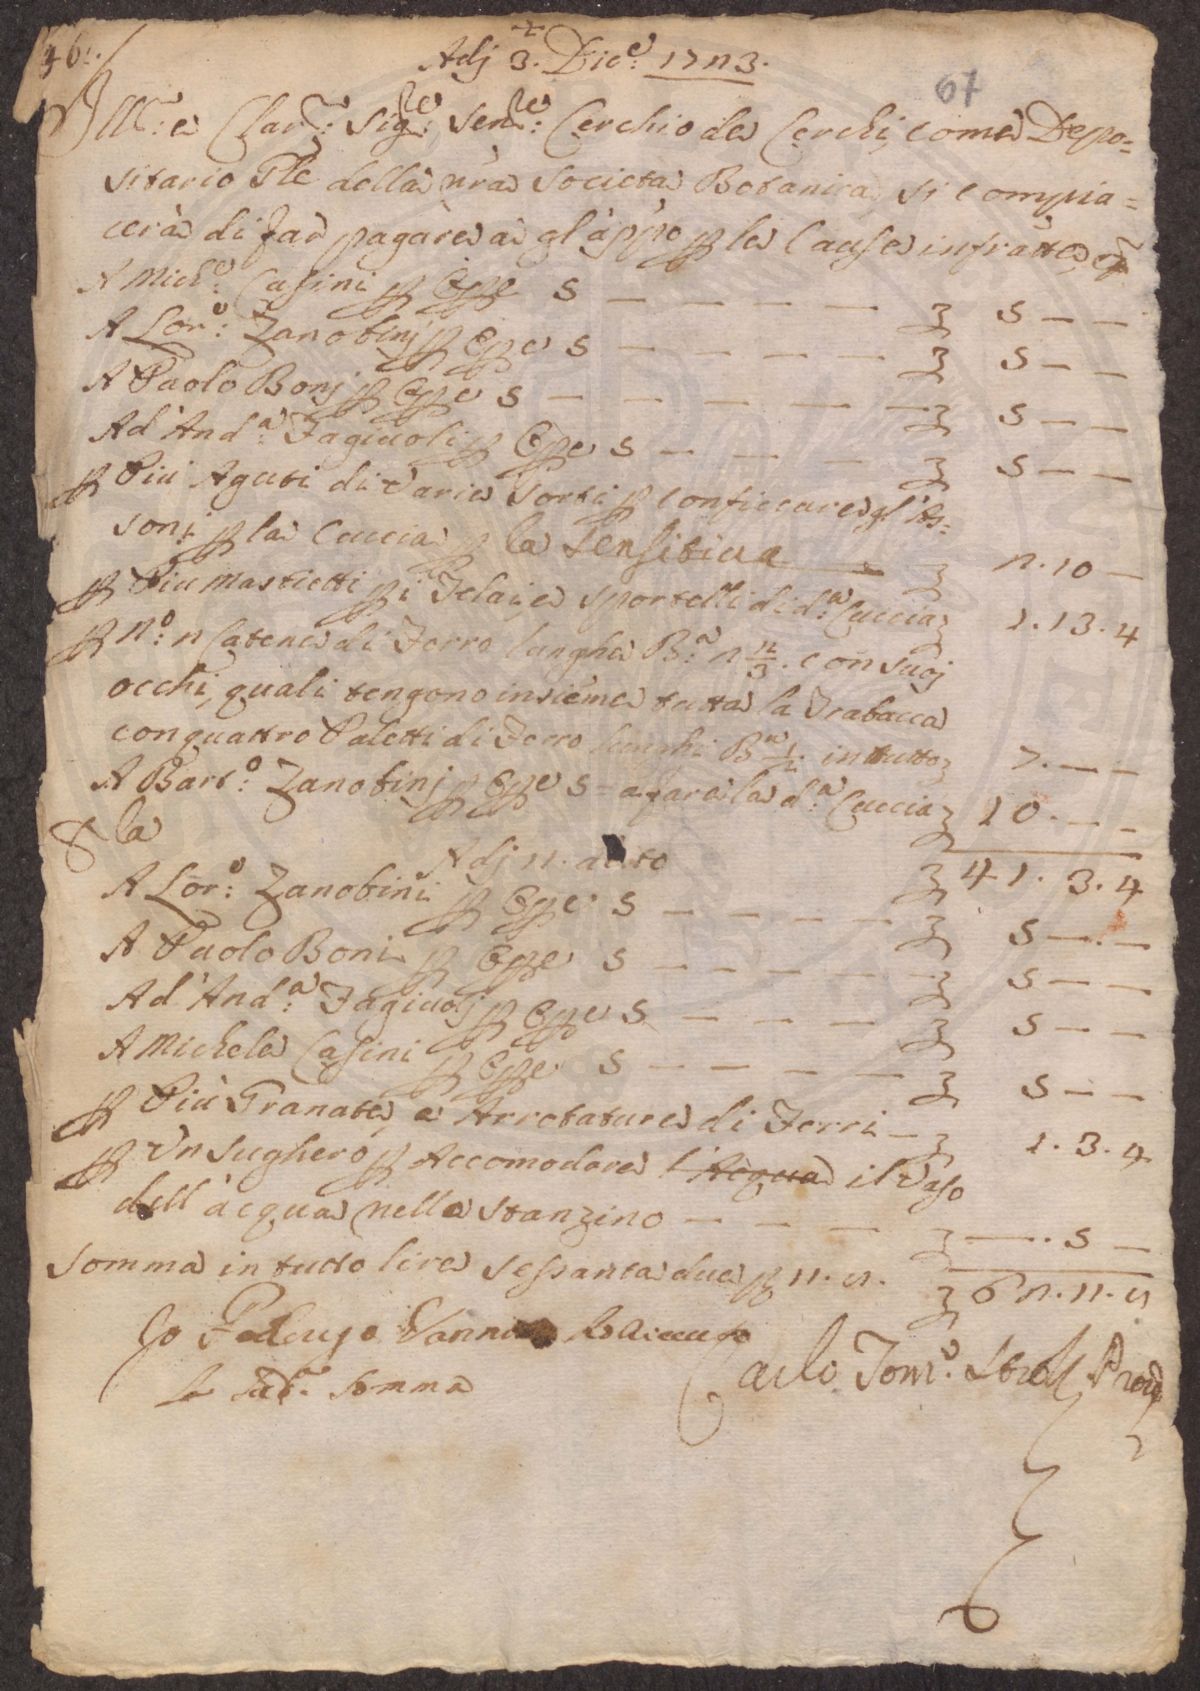 46.
Adj 3. Dic.e 1723.
67
Ill.e e Clar.mo Sig.re Sen.re Cerchio de Cerchi, come Depo=
sitario Gle della nrà Società Botanica, si compia=
cerà di far pagare à gl'appo p le Cause infratte, e
A Mich.e Casini p Opre 5 — — — — — £ 5 — —
A Lor.o Zanobinj p Opre 5 — — — — — £ 5 — —
A Paolo Bonj p Opre 5 — — — — — £ 5 — —
Ad And.a Fagiuoli p Opre 5 — — — £ 5 — —
p Più Aguti di Varie Sorti p conficcare gl'As=
soni p la Cuccia p la Sensitiua — £ 2.10 —
p Più Mastietti p i Telai, e sportelli di d.a Cuccia £ 1.13.4
p N.o 2 Catene di Ferro lunghe B.a 2 2/3. con suoj
occhi, quali tengono insieme tutta la Trabacca
con quattro Paletti di Ferro lunghi B.a 1/2 in tutto £ 7.— —
A Bart.o Zanobinj p Opre 5 a fare la d.a Cuccia £ 10.— —
& la
£ 41.3.4
Adj 11. detto
A Lor.o Zanobini p Opre 5 — — — — £ 5 —.—
A Paolo Boni p Opre 5 — — — — £ 5 — —
Ad And.a Fagiuolj p Opre 5 — — — — £ 5 — —
A Michele Casini p Opre 5 — — — — £ 5 — —
p Più Granate, e Arrotature di Ferri — £ 1.3.4
p Un sughero p Accomodare l'Acqua il Vaso
dell'acqua nello stanzino — — — £ —.5 —
Somma in tutto lire sessanta due p 11.8. £ 62.11.8
Io Vann
la Somma
Carlo Tom.o Strozzi Prov.re